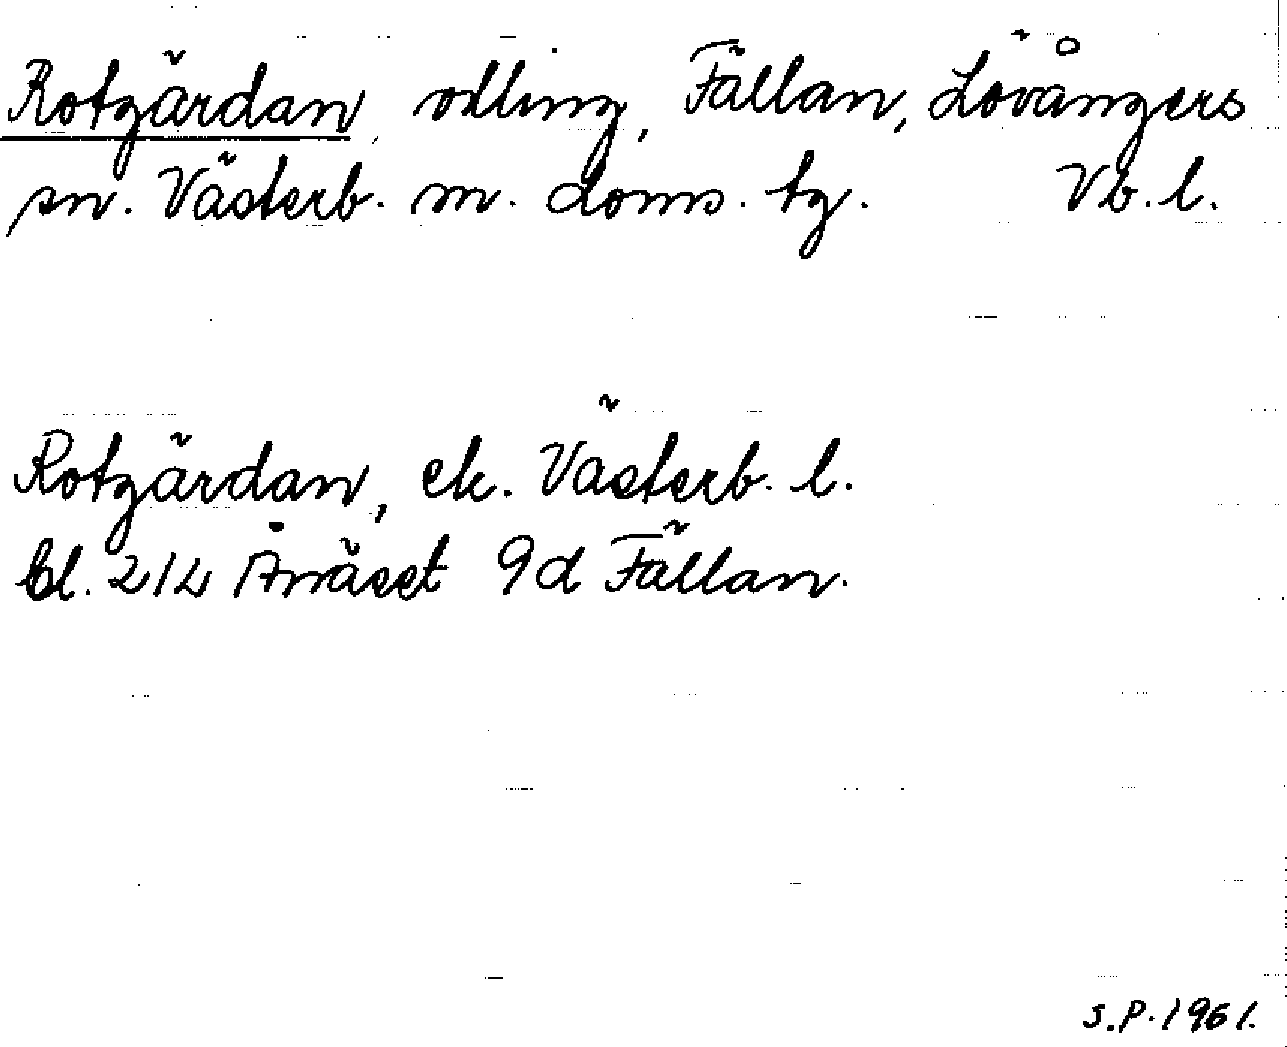 Rotgärdan, odling, Fällan, Lövångers
sn. Västerb. m. doms. tg. Vb. l.
Rotgärdan, ek. Västerb. l.
bl. 21L Ånäset 9d Fällan.
S.P. 1961.